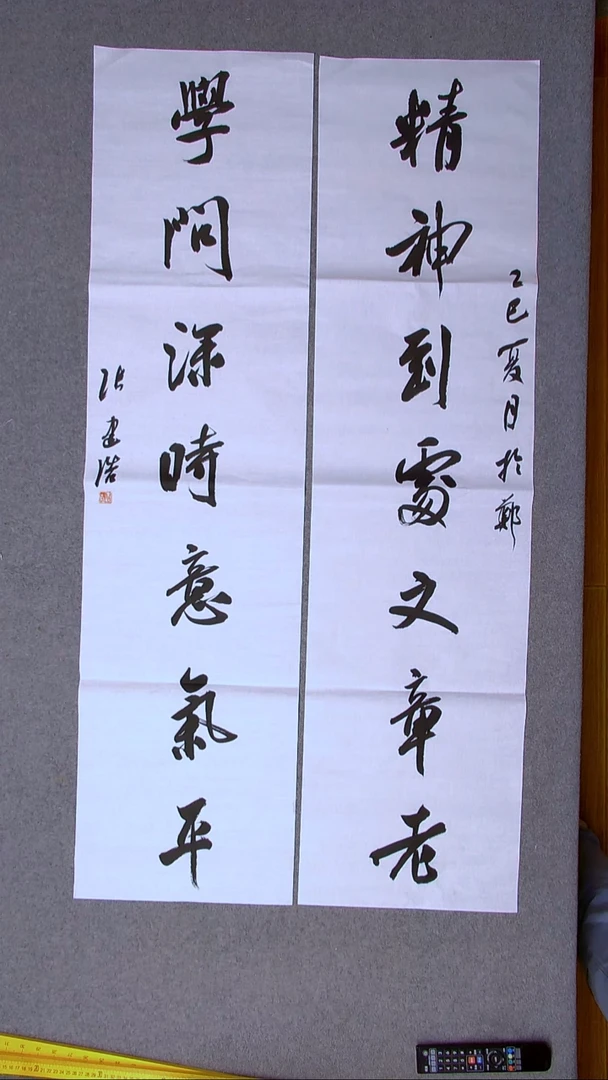 精神到處文章老
乙巳夏月於鄭
學問深時意氣平
張建浩